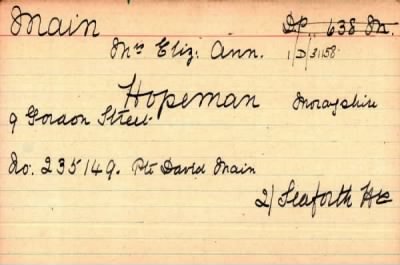 Main
DP. 638 M.
Mrs Eliz: Ann.
1/D/31158.
Hopeman Morayshire
9 Gordon Street.
No. 235149. Pte David Main
2/ Seaforth Hrs